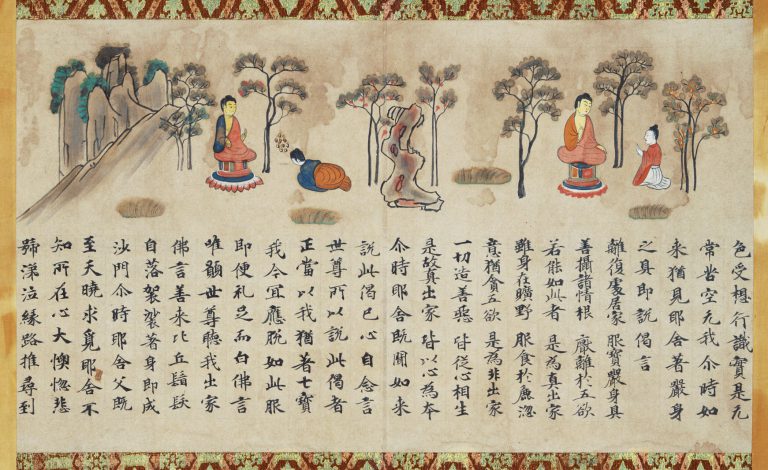 色受想行識實是无
常苦空无我尒時如
来猶見耶舍著嚴身
之具即說偈言
離復處居家 服寶嚴身具
善攝諸情根 厭離於五欲
若能如此者 是為真出家
雖身在曠野 服食於麁澁
意猶貪五欲 是為非出家
一切造善惡 皆從心相生
是故真出家 皆以心為本
尒時耶舍既聞如来
說此偈已心自念言
世尊所以說此偈者
正當以我猶著七寶
我今宜應脫如此服
即便礼足而白佛言
唯願世尊聽我出家
佛言善来比丘鬚髮
自落袈裟著身即成
沙門尒時耶舍父既
至天曉求覓耶舍不
知所在心大懊惱悲
號涕泣緣路推尋到